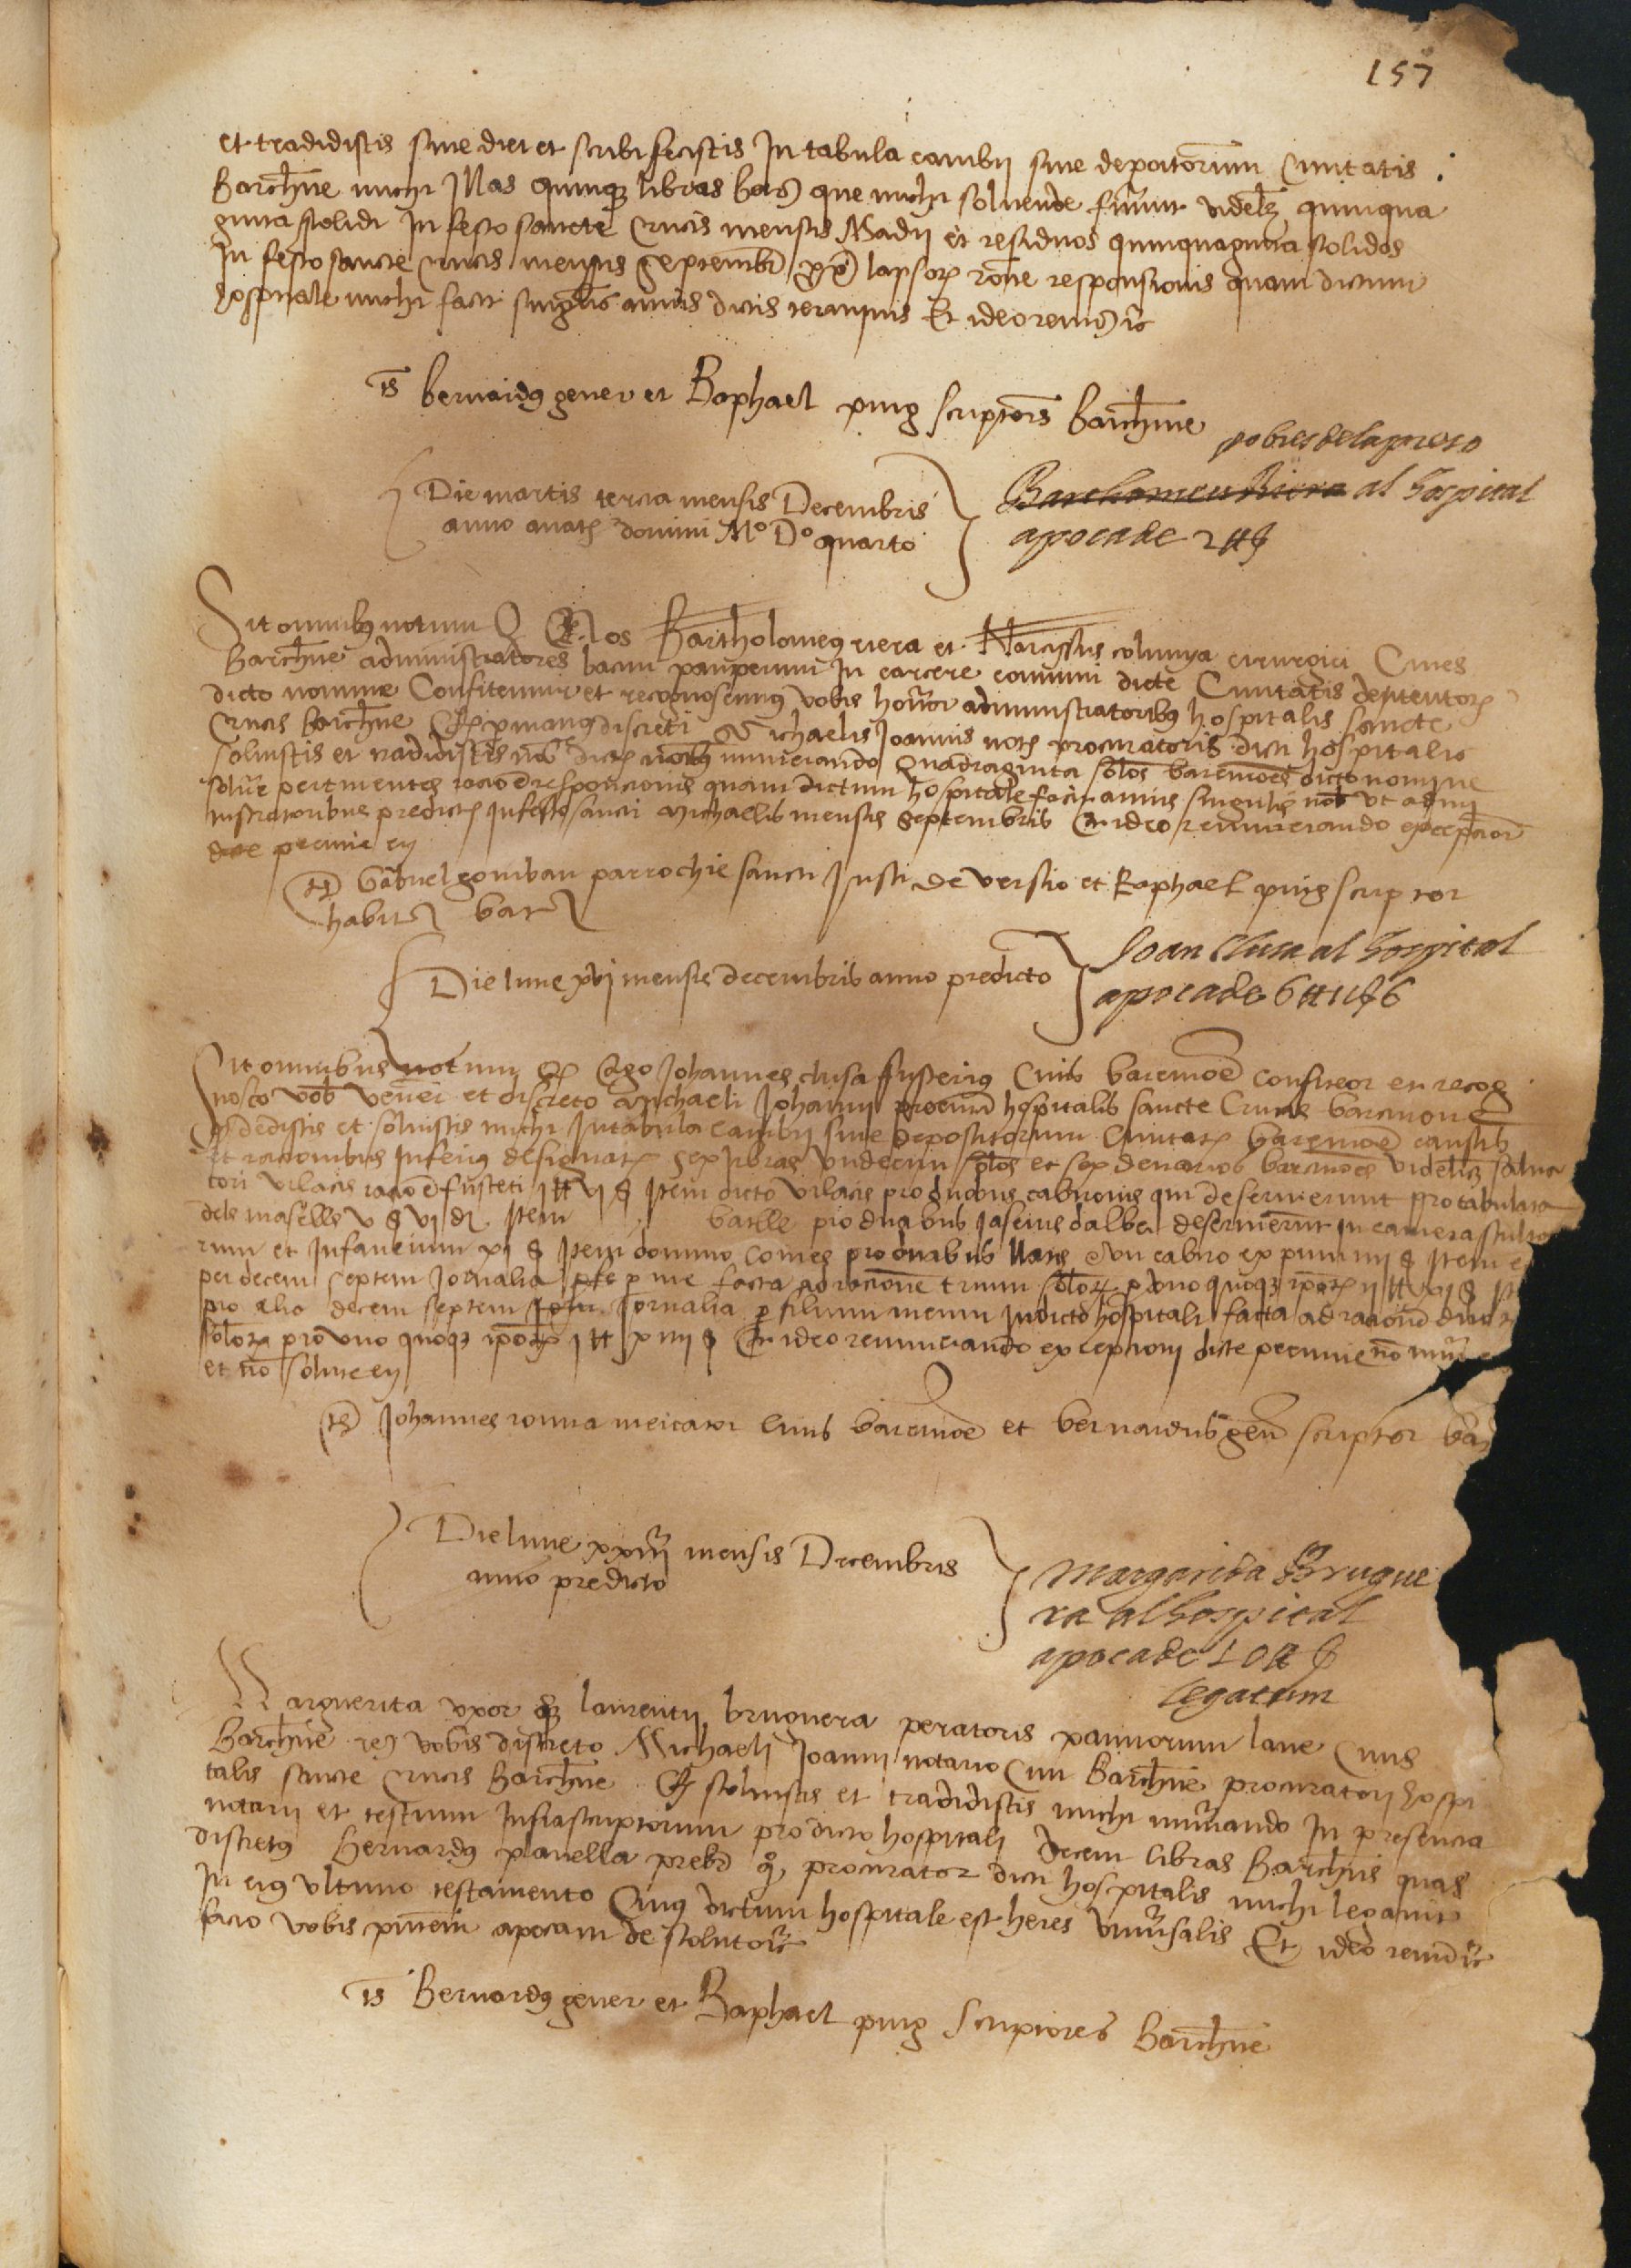 157
et tradidistis sive dici et scribi fecistis In tabula cambii sive depositorum Civitatis
Barchne michi Illas quinque libras bars que michi solvende fuerunt videlz quinqua
ginta solidi In festo sancte Crucis mensis Madii et residuos quinquaginta solidos
In festo sancte Crucis mensis Septembr lapsor rone responsionis quam dictum
hospitale michi facit singulis annis dictis terminis Et ideo renus etc
ts bernardus gener et Raphael puig scriptors barchne
pobres de la preso
Die martis tercia mensis Decembris
anno a nat domini Mo Do quarto
Barthomeu Riera al hospital
apoca de 2 ₶ ſ
Sit omnibus notum Q Nos Bartholomeus riera et Narcissus colunya cirurgici Cives
Barchne administratores bacini pauperum In carcere comuni dicte Civitatis detentor
dicto nomine Confitemur et recognoscimus vobis honor administratoribus hospitalis sancte
Crucis barchne Q per manus discreti Michaelis Joannis not procuratoris dicti hospitalis
solvistis et tradidistis nob dictis numerando Quadraginta solos barcinones dicto nomine
pertinentes racione responcionis quam dictum hospitale facit annis singulis nob ut admi
nistratoribus predict In festo sancti Michaelis mensis Septembris Et ideo renunciando excepcion
pecunie etc
ts Gabriel gombau parrochie sancti Justi de versio et Raphael puig scriptor
habit bar
Die lune xvi mensis decembris anno predicto
Joan Clusa al hospital
apoca de 6 ₶ 11 ſ 6
Sit omnibus notum Q Ego Johannes clusa fusterius Civis barcinone confiteor et recog
nosco vob vener et discreto Michaeli Johanni procur hospitalis sancte Crucis barcinone
Q dedistis et solvistis michi In tabula cambii sive depositorum Civitat barcinone causis
et racionibus Inferius designat sex libras undecim solos et sex denarios barcinones videlicz salva
tori vilacis racione fusteti i ₶ vi ſ Item dicto vilacis pro duobus cabironis qui deservierunt pro tabulata
dels masells v ſ vi d Item batlle pro duabus jaseins dalber deservierunt in camera stulto
rum et Infancium xi ſ Item domino comes pro duabus llates e un cabiro ex pi iiii ſ Item
per decem septem Jornalia per me facta ad racionem trium solor pro uno quoque ipor ii ₶ xi ſ
pro alio decem septem Jornalia per filium meum In dicto hospitali facta ad racione duor
solor pro uno quoque ipor i ₶ xiiii ſ Et ideo renunciando excepcioni dicte pecunie no num
et no solute etc
ts Johannes roma mercator Civis barcinone et bernardus gener scriptor
Die lune xxiii mensis Decembris
anno predicto
Margarida Brugue
ra al hospital
apoca de 10 ₶ ſ
legatum
Marguerita uxor laurentii bruguera peratoris pannorum lane Civis
Barchne vobis discreto Michaeli Joanni notario Civi Barchne procuratori hospi
talis sancte Crucis Barchne Q solvistis et tradidistis michi numerando In presencia
notarii et testium Infrascriptorum pro dicto hospitali decem libras Barchnes quas
discretus Bernardus planella prebr qo procurator dicti hospitalis michi legavit
In eius ultimo testamento Cuius dictum hospitale est heres universalis Et ideo renun etc
facio vobis presentem apocam de soluto etc
ts Bernardus gener et Raphael puig scriptores Barchne